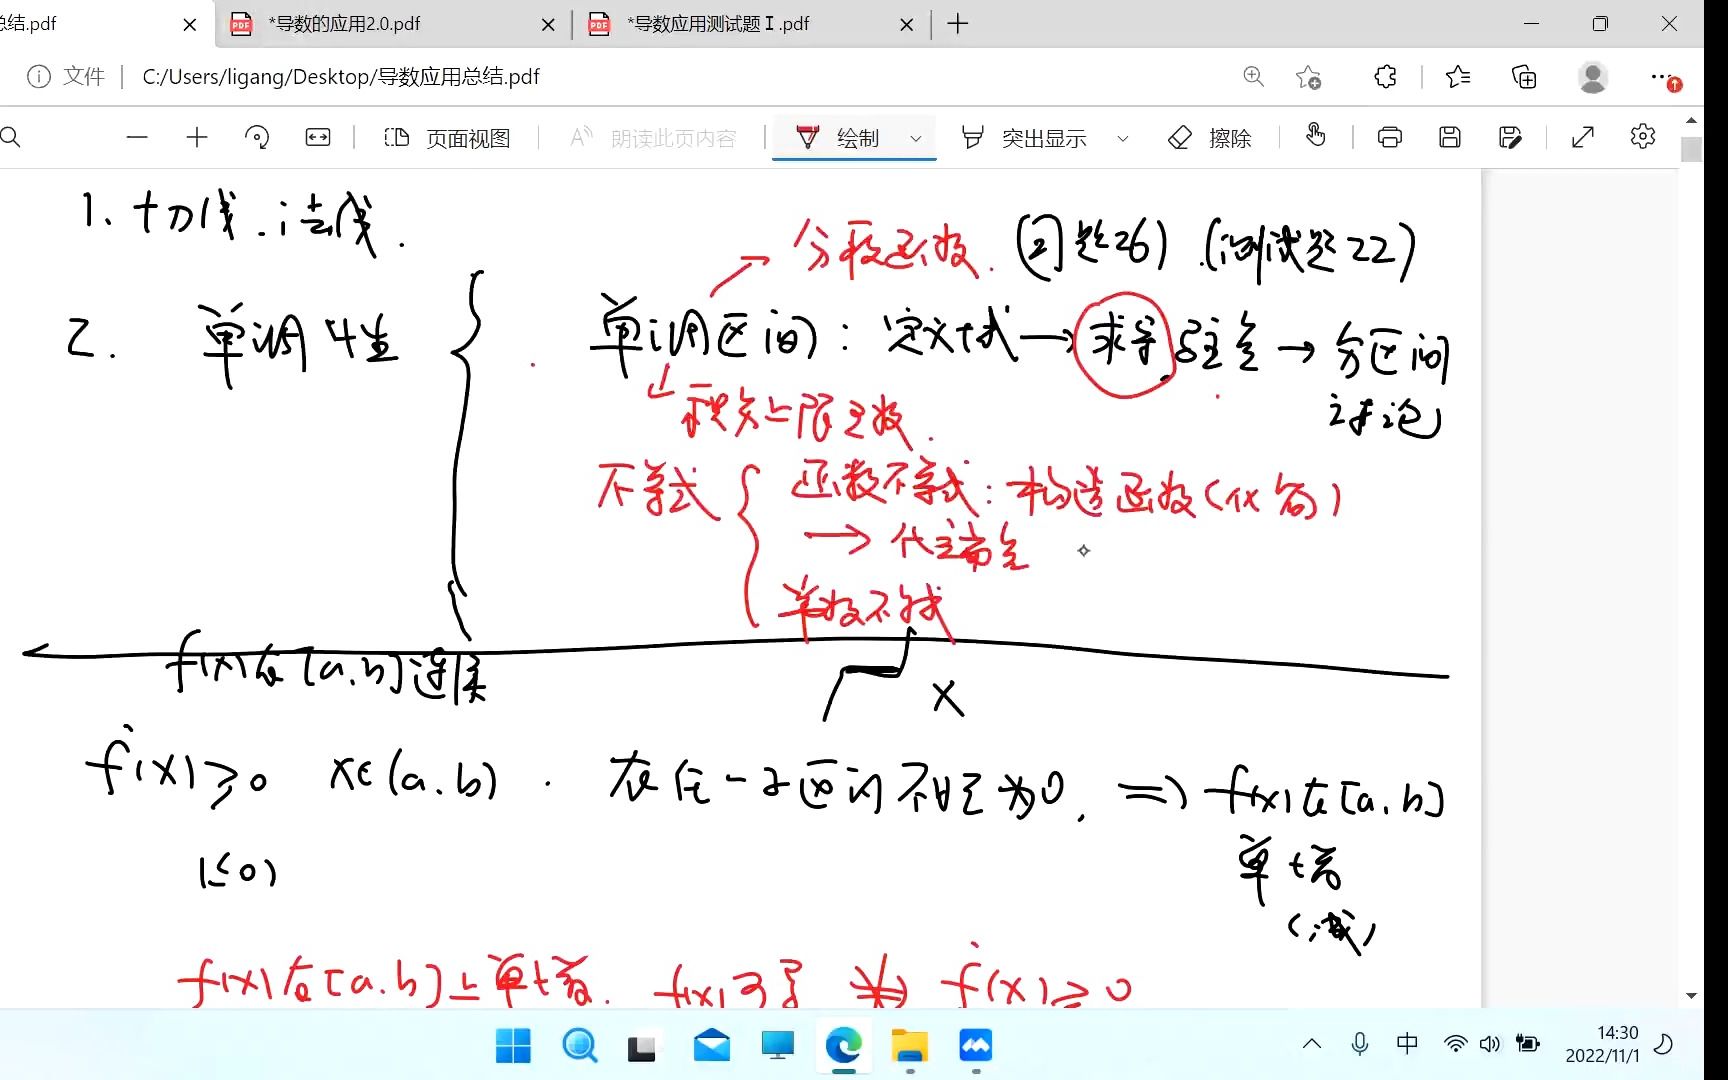 总结.pdf
*导数的应用2.0.pdf
*导数应用测试题Ⅰ.pdf
文件 C:/Users/ligang/Desktop/导数应用总结.pdf
页面视图 朗读此页内容 绘制 突出显示 擦除
1. 切线.法线.
分段函数. (习题26).(测试题22)
2. 单调性
单调区间: 定义域→求导 驻点→分区间
讨论
积分上限函数.
不等式
函数不等式: 构造函数(作商)
→ 代端点
单调不减
f(x)在[a.b]连续
X
f'(x)≥0 x∈(a.b). 在任一子区间不恒为0, ⇒ f(x)在[a.b]
单增
(≤0)
(减)
f(x)在[a.b]上单增. f(x)可导 f'(x)≥0
中
14:30
2022/11/1